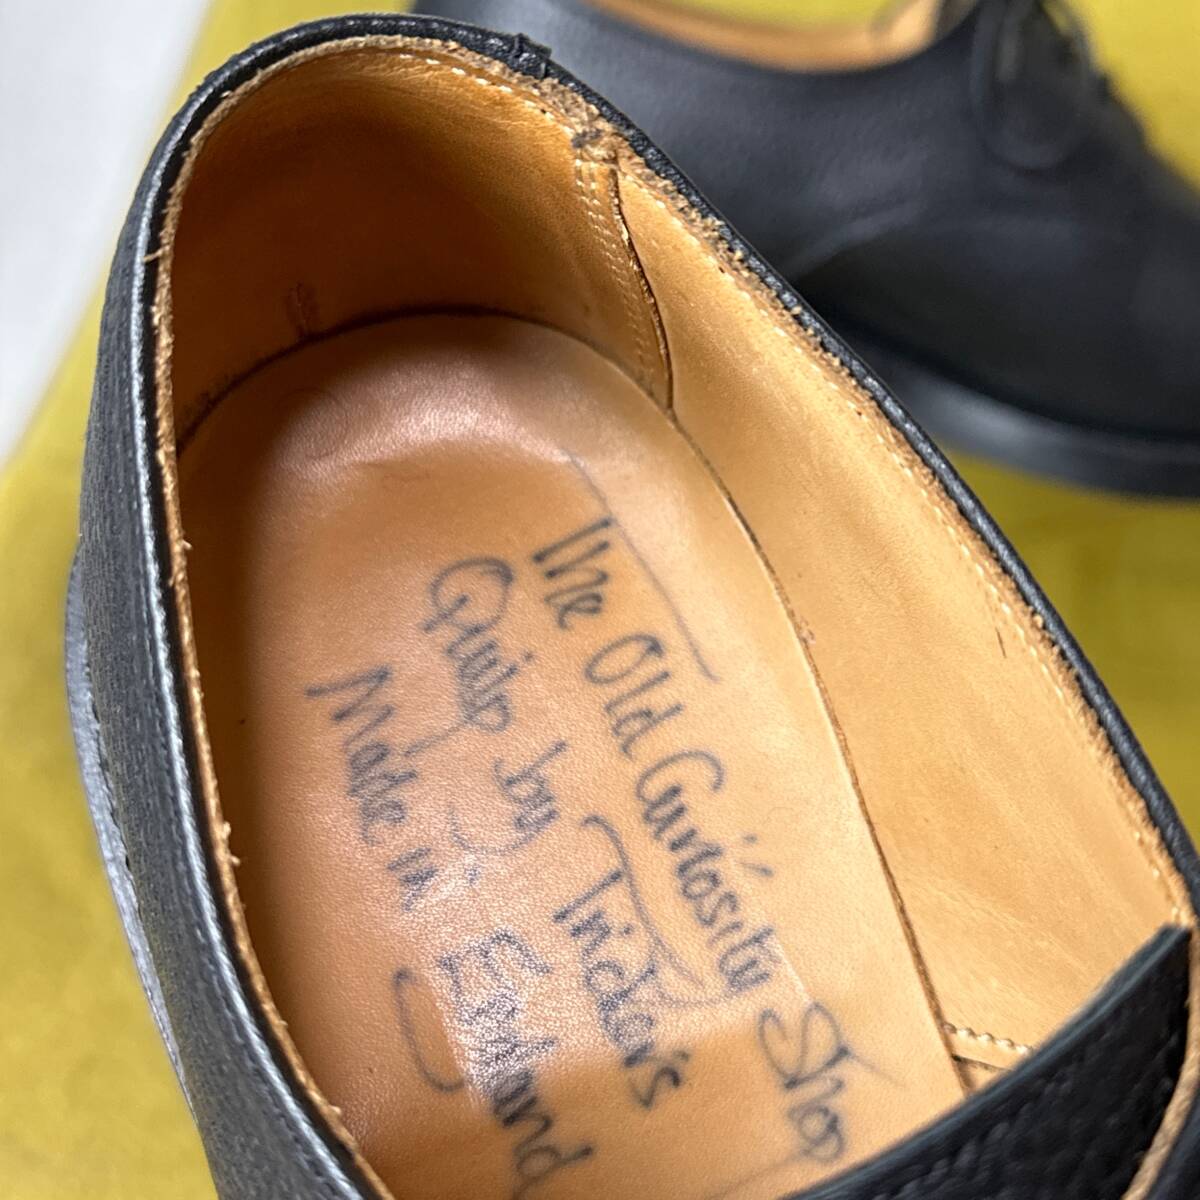 The Old Curiosity Shop
Quilp by Tricker's
Made in England